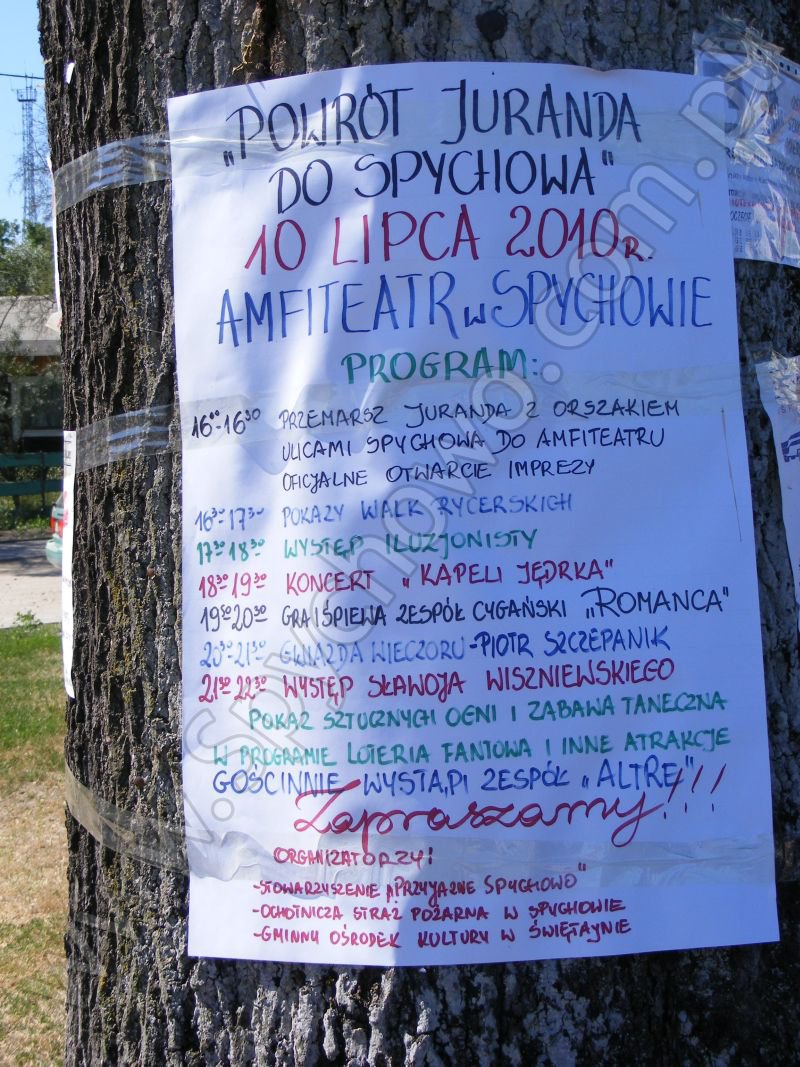 „POWRÓT JURANDA
DO SPYCHOWA"
10 LIPCA 2010 R.
AMFITEATR w SPYCHOWIE
PROGRAM:
16⁰⁰-16³⁰ PRZEMARSZ JURANDA Z ORSZAKIEM
ULICAMI SPYCHOWA DO AMFITEATRU
OFICJALNE OTWARCIE IMPREZY
16³⁰-17³⁰ POKAZY WALK RYCERSKICH
17³⁰-18³⁰ WYSTĘP ILUZJONISTY
18³⁰-19³⁰ KONCERT „KAPELI JĘDRKA"
19³⁰-20³⁰ GRA I ŚPIEWA ZESPÓŁ CYGAŃSKI „ROMANCA"
20³⁰-21³⁰ GWIAZDA WIECZORU - PIOTR SZCZEPANIK
21³⁰-22³⁰ WYSTĘP SŁAWOJA WISZNIEWSKIEGO
POKAZ SZTUCZNYCH OGNI I ZABAWA TANECZNA
W PROGRAMIE LOTERIA FANTOWA I INNE ATRAKCJE
GOŚCINNIE WYSTĄPI ZESPÓŁ „ALTRE"
Zapraszamy!!!
ORGANIZATORZY:
-STOWARZYSZENIE „PRZYJAZNE SPYCHOWO"
-OCHOTNICZA STRAŻ POŻARNA W SPYCHOWIE
-GMINNY OŚRODEK KULTURY W ŚWIĘTAJNIE
www.spychowo.com.pl